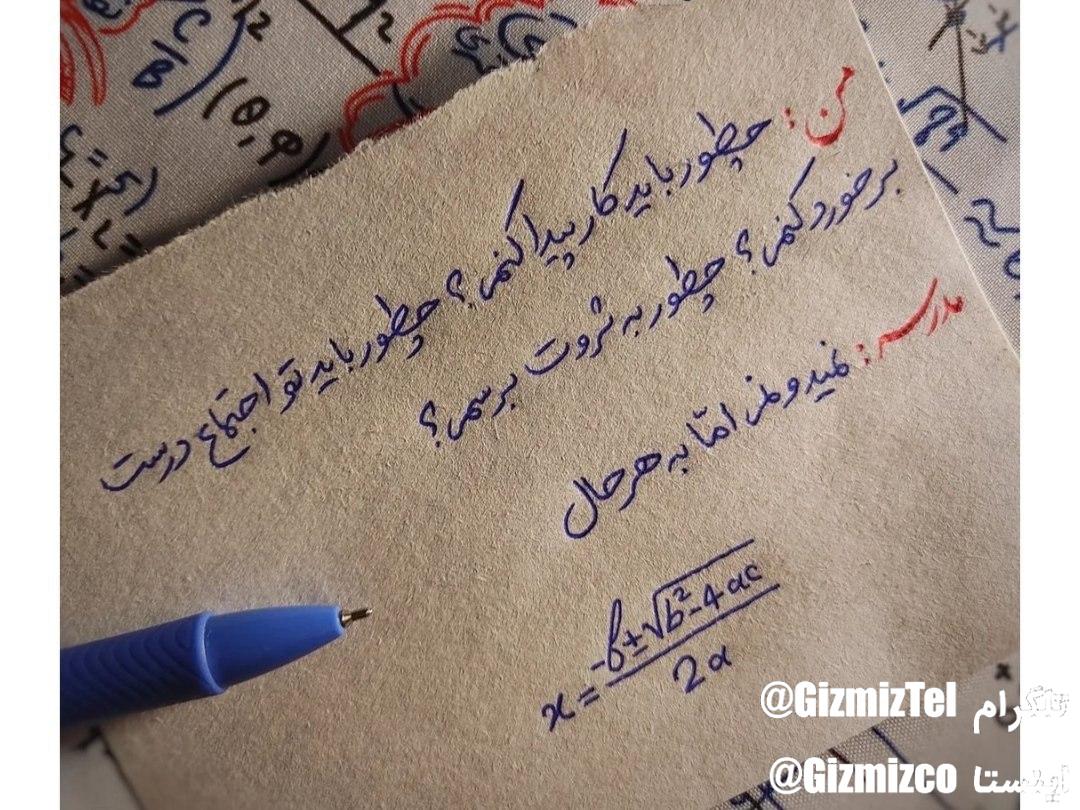 من: چطور باید کار پیدا کنم؟ چطور باید تو اجتماع درست
برخورد کنم؟ چطور به ثروت برسم؟
مدرسه: نمیدونم اما به هر حال
x = -b±√b²-4ac / 2a
@GizmizTel تلگرام
@Gizmizco اینستا